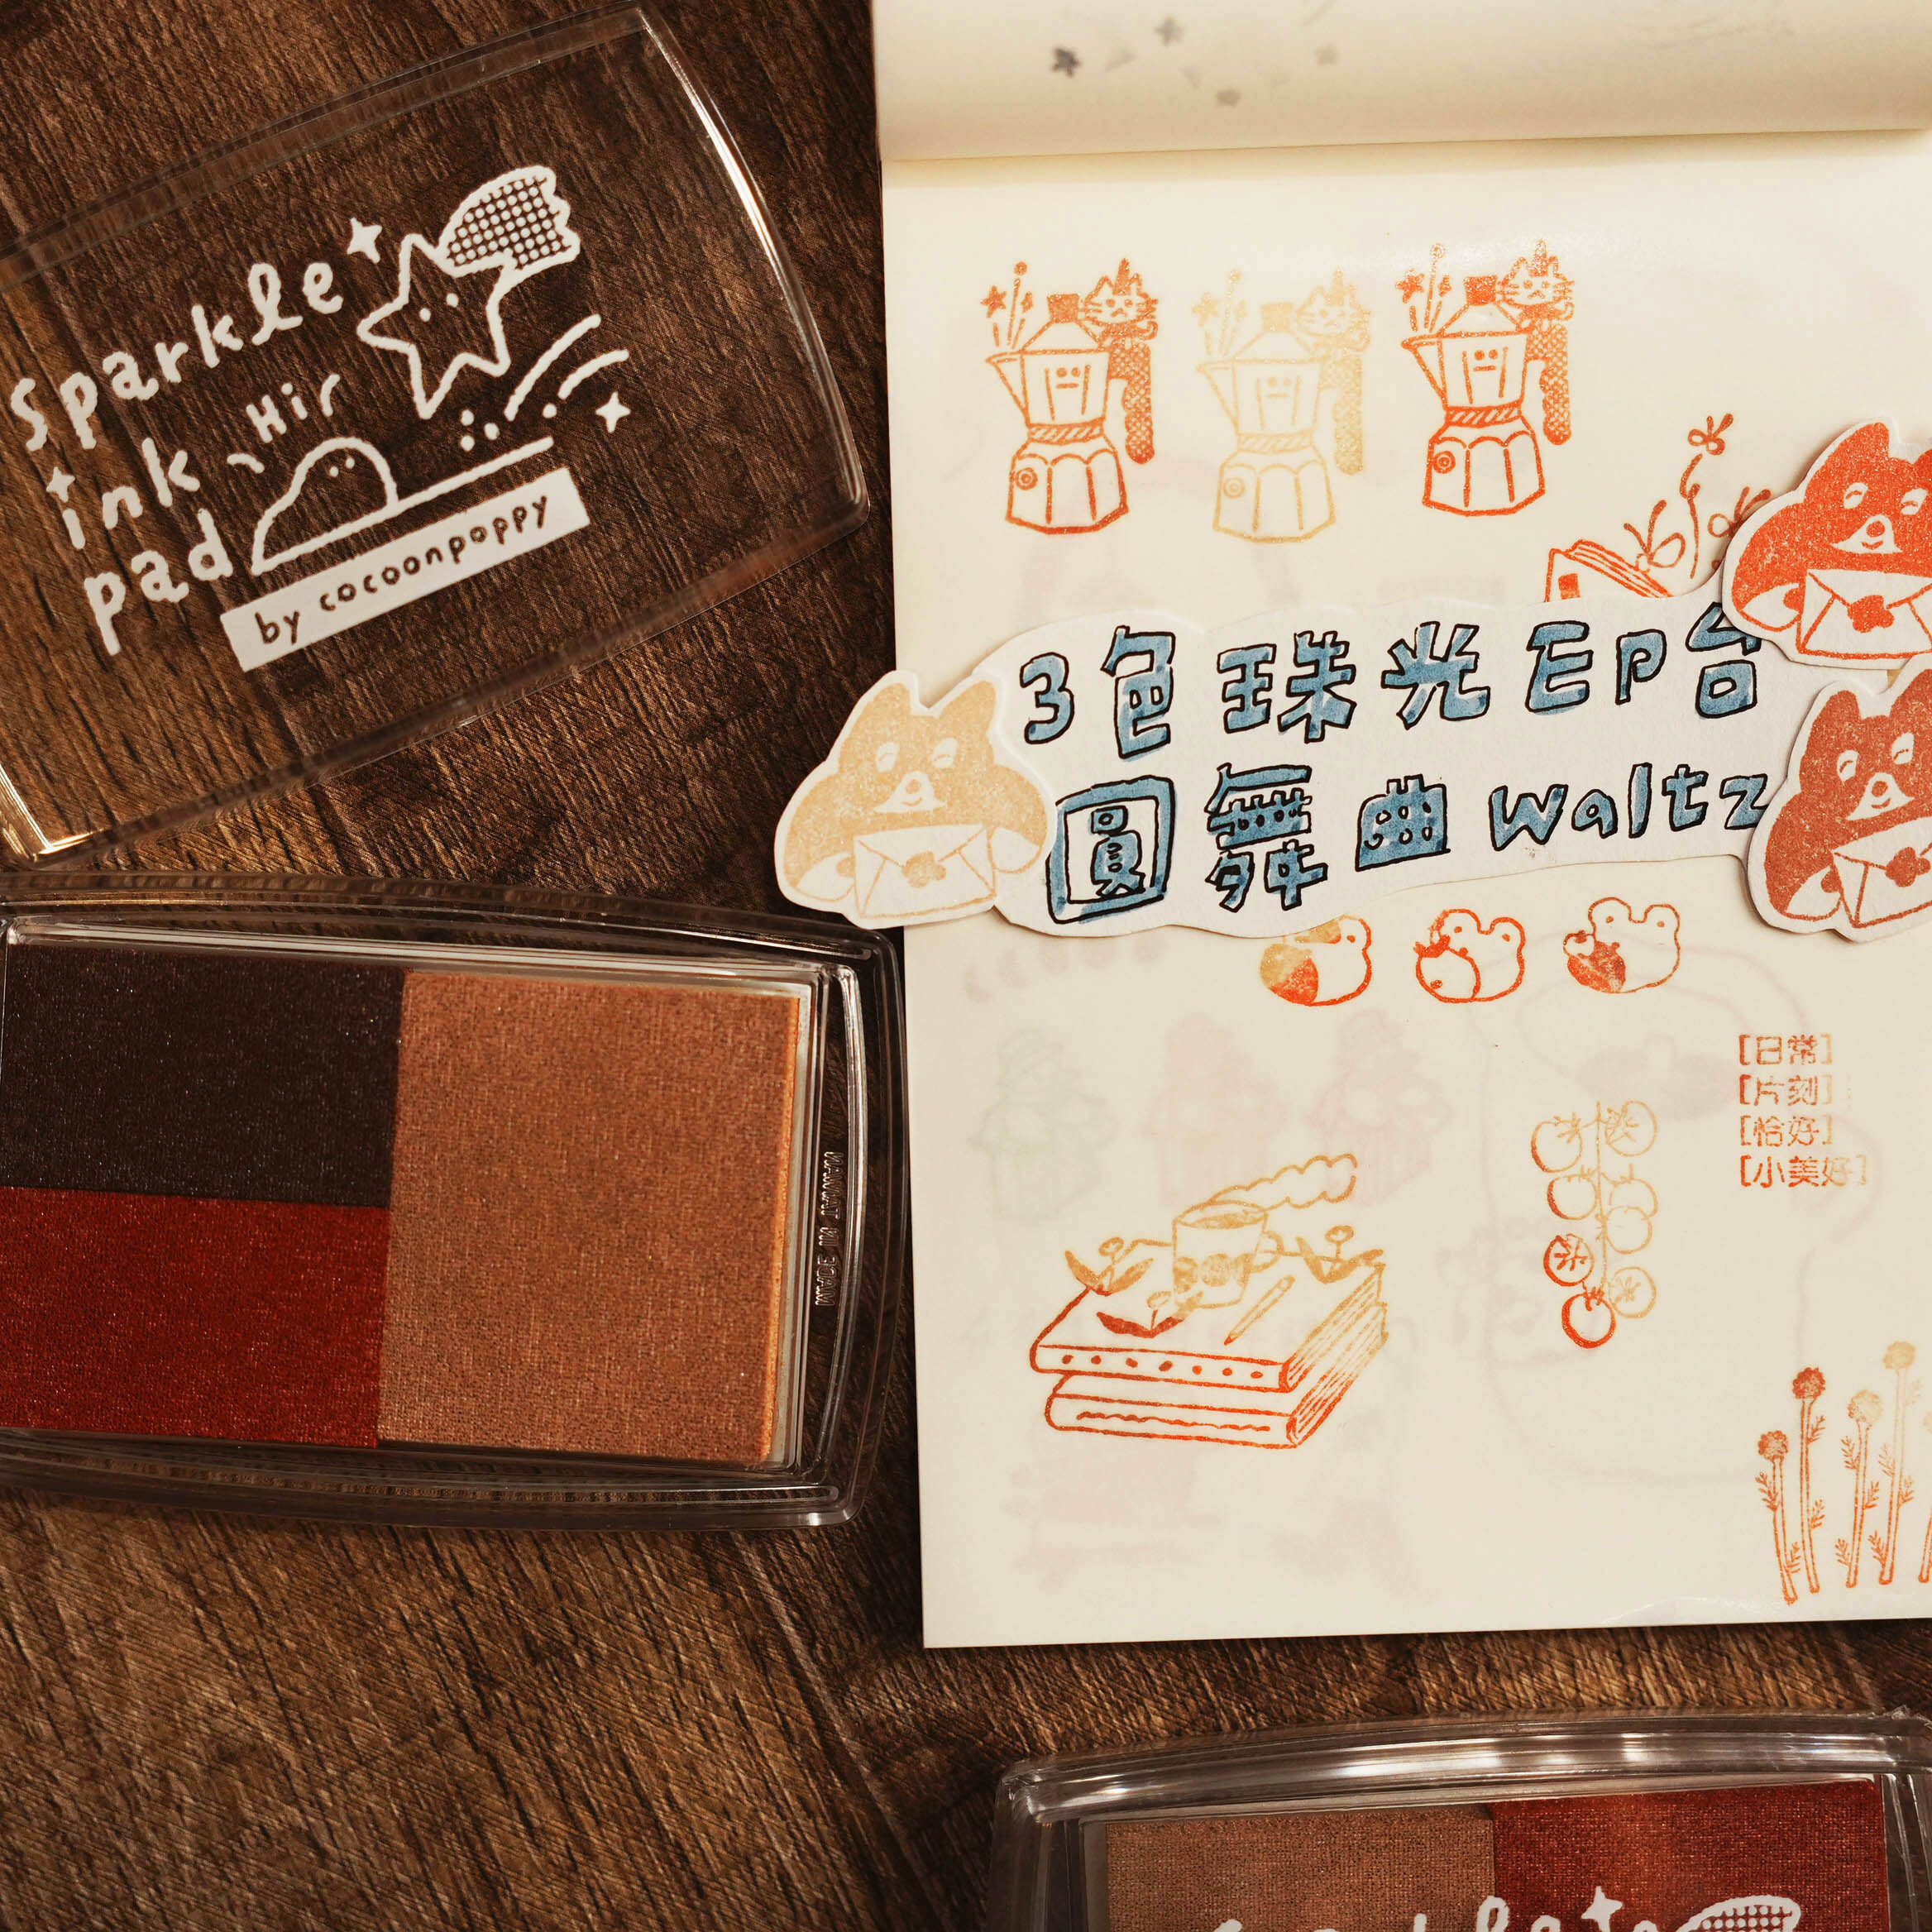 sparkle
Hir
ink
pad
by cocoonpoppy
3色珠光印台
圓舞曲 waltz
[日常]
[片刻]
[恰好]
[小美好]
MADE IN TAIWAN